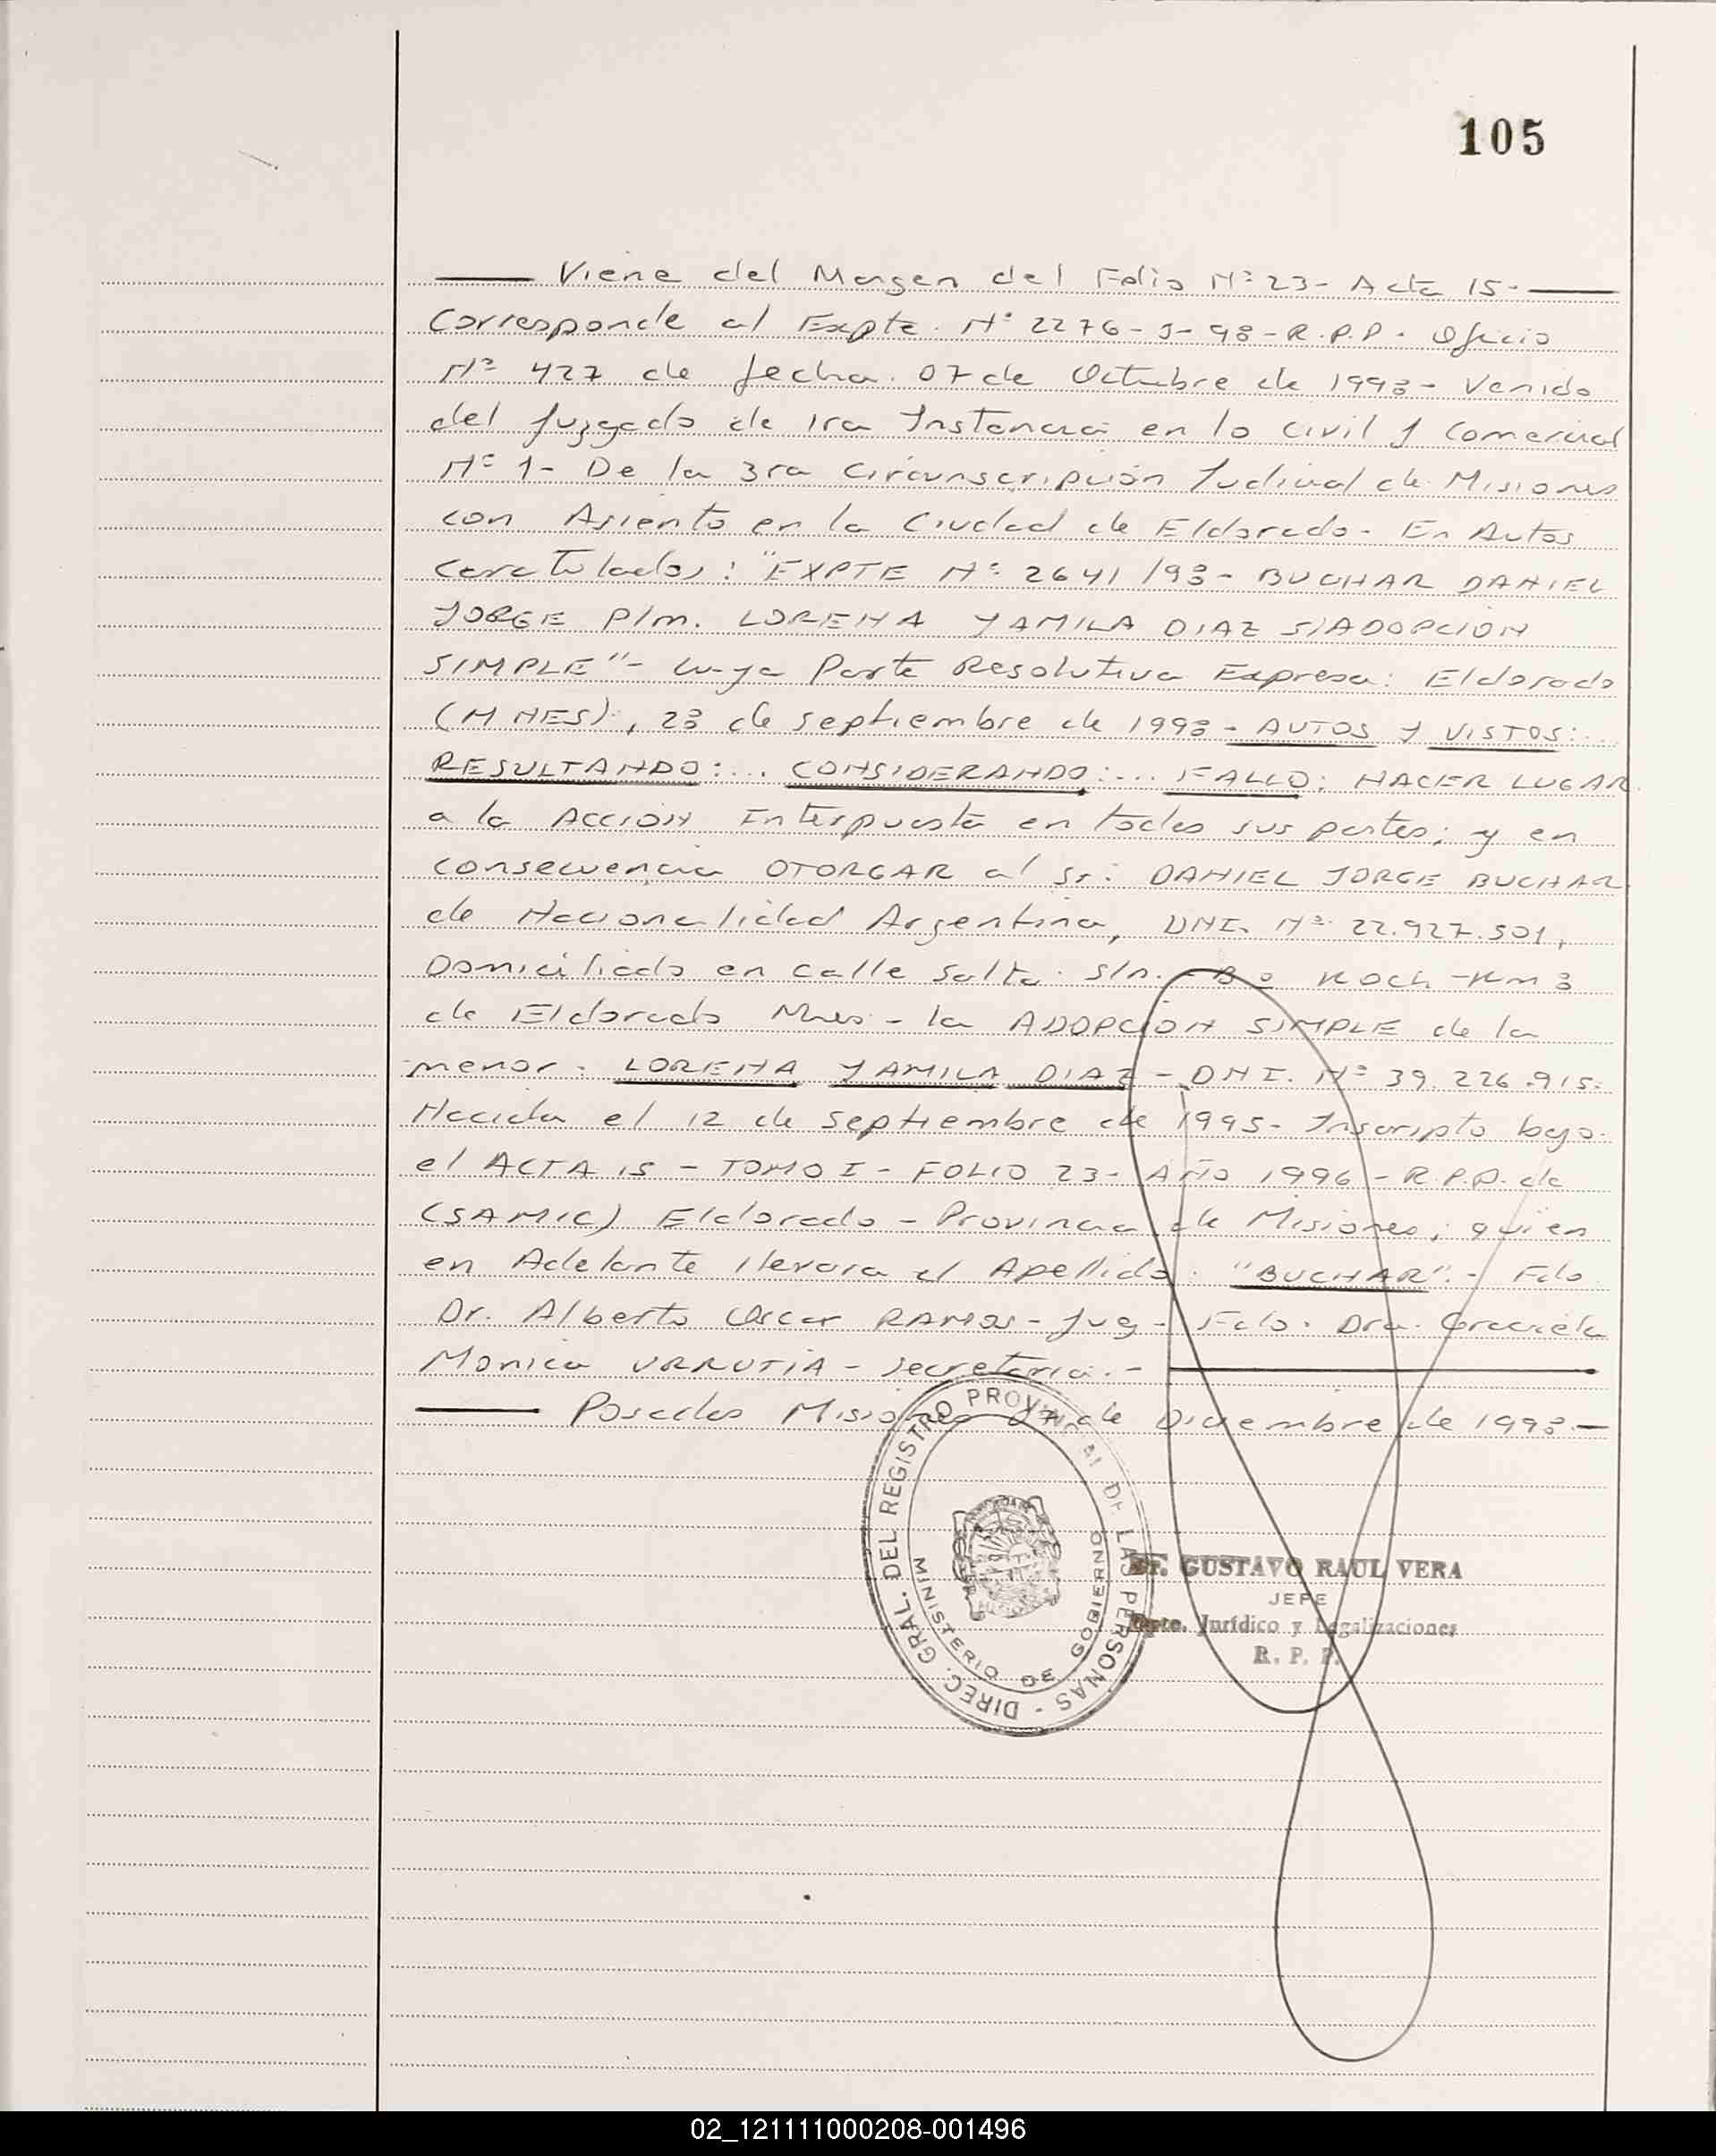 105
Viene del Margen del Folio Nº 23 - Acta 15 -
Corresponde al Expte. Nº 2276-J-98-R.P.P. Oficio
Nº 427 de fecha 07 de Octubre de 1998 - Venido
del Juzgado de 1ra Instancia en lo Civil y Comercial
Nº 1 - De la 3ra Circunscripción Judicial de Misiones
con Asiento en la Ciudad de Eldorado - En Autos
Caratulados: "EXPTE Nº 2641/98 - BUCHAR DANIEL
JORGE P/m. LORENA YAMILA DIAZ S/ADOPCION
SIMPLE" - cuya Parte Resolutiva Expresa: Eldorado
(MNES), 23 de septiembre de 1998 - AUTOS Y VISTOS:...
RESULTANDO:... CONSIDERANDO:... FALLO: HACER LUGAR
a la ACCION Interpuesta en todas sus partes; y en
consecuencia OTORGAR al Sr: DANIEL JORGE BUCHAR
de Nacionalidad Argentina, DNI. Nº 22.927.501,
Domiciliado en calle Salta s/n. - Bº KOCH - Km 3
de Eldorado Mnes - la ADOPCION SIMPLE de la
menor: LORENA YAMILA DIAZ - DNI. Nº 39.226.915.
Nacida el 12 de septiembre de 1995 - Inscripto bajo
el ACTA 15 - TOMO I - FOLIO 23 - AÑO 1996 - R.P.P. de
(SAMIC) Eldorado - Provincia de Misiones; quien
en Adelante llevara el Apellido: "BUCHAR". - Fdo
Dr. Alberto Oscar RAMOS - Juez - Fdo. Dra. Graciela
Monica URRUTIA - secretaria. -
Posadas Misiones 07 de Diciembre de 1998. -
DIREC. GRAL. DEL REGISTRO PROVINCIAL DE LAS PERSONAS -
MINISTERIO DE GOBIERNO
Dr. GUSTAVO RAUL VERA
JEFE
Dpto. Jurídico y Legalizaciones
R. P. P.
02_121111000208-001496